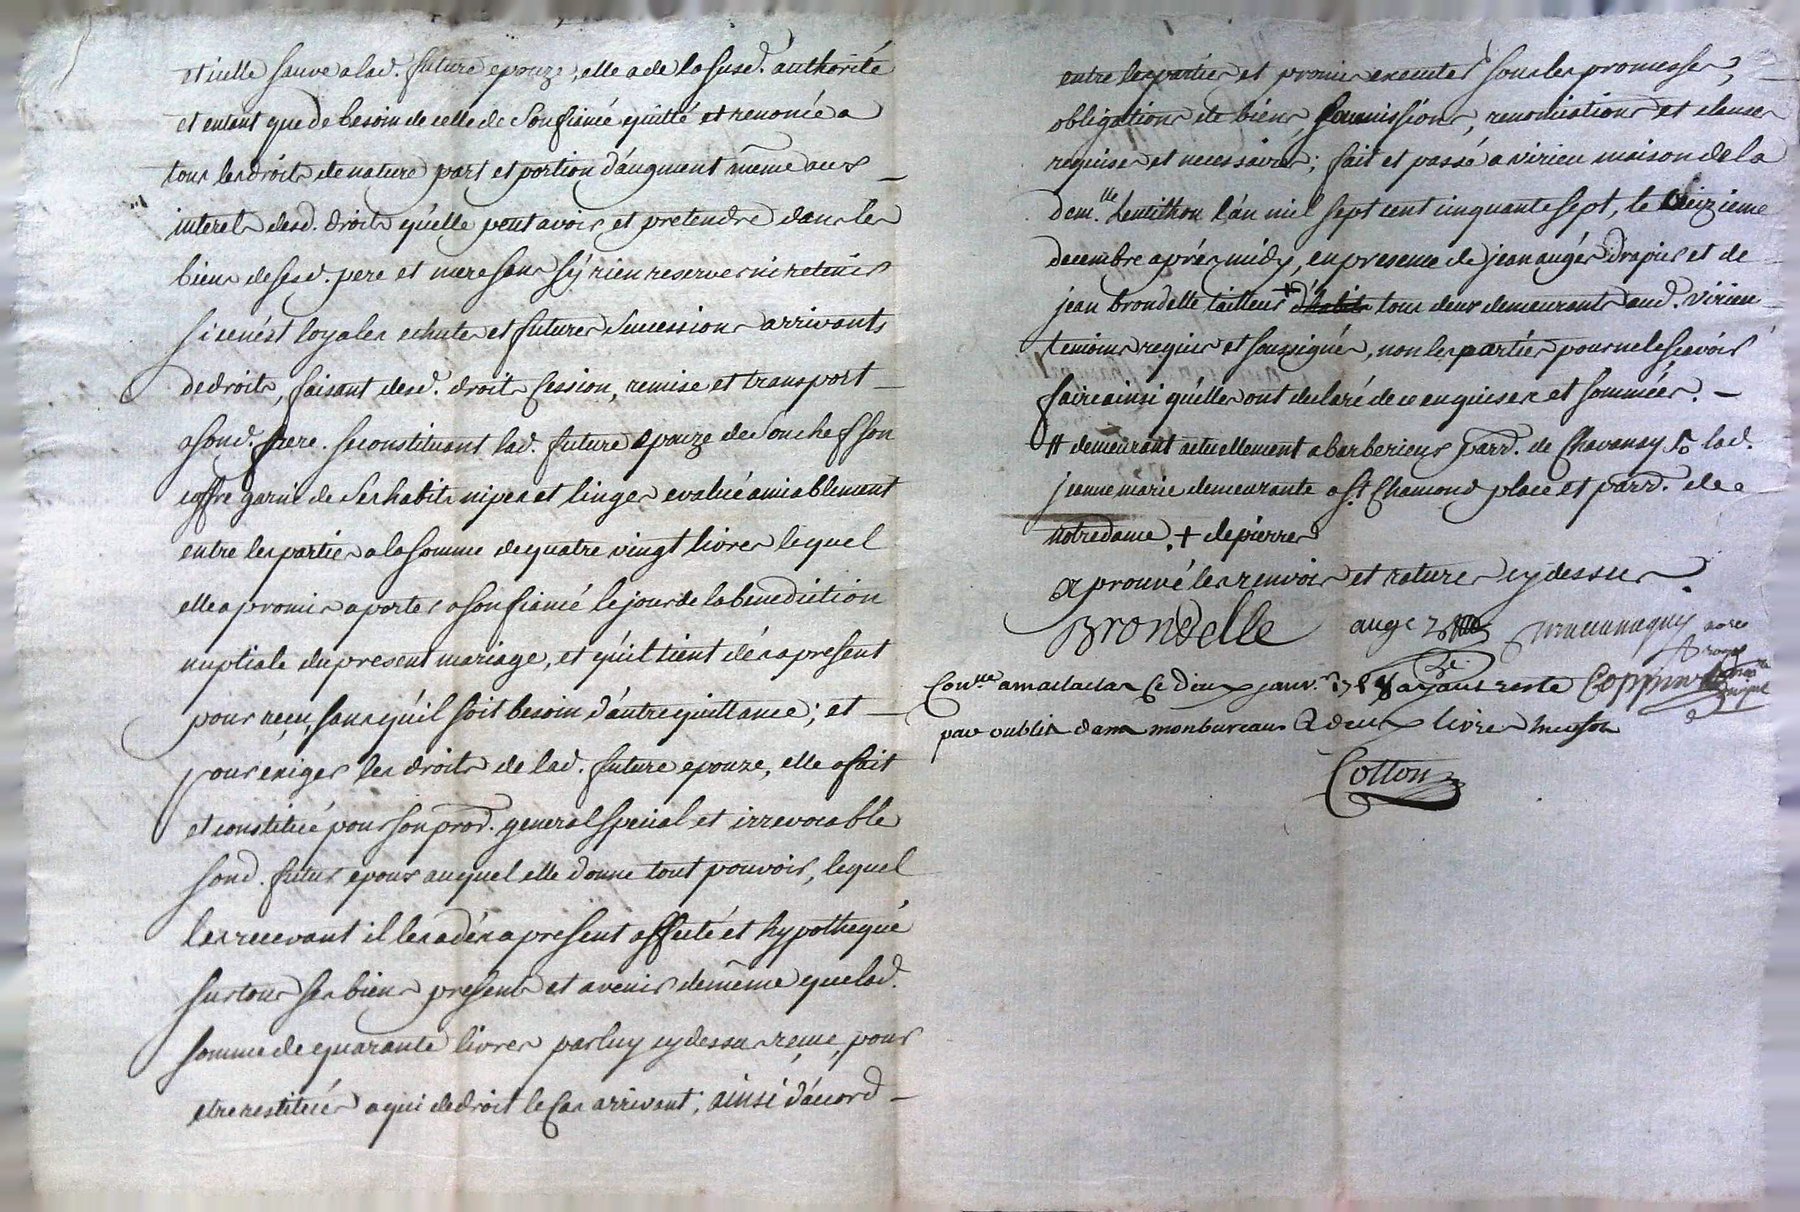 et icelle sauve a lad. future epouze, elle a de la susd. authorité
et entant que de besoin de celle de son fiancé quitté et renoncé a
tous les droits de nature part et portion d'augment même aux
interets desd. droits qu'elle peut avoir et pretendre dans les
biens de sesd. pere et mere sans s'y rien reserver ni retenir
si ce n'est loyales echutes et futures successions arrivants
de droits, faisant desd. droits cession, remise et transport
a sond. frere. se constituant lad. future epouze de son chef son
coffre garni de ses habits nipes et linges evalué amiablement
entre les parties a la somme de quatre vingt livres lequel
elle a promis aporter a son fiancé le jour de la benediction
nuptiale du present mariage, et qu'il tient dés a present
pour reçu, sans qu'il soit besoin d'autre quittance; et
pour exiger les droits de lad. future epouze, elle a fait
et constitué pour son prod. general special et irrevocable
sond. futur epoux auquel elle donne tout pouvoir, lequel
les recevant il les a dés a present affecté et hypothequé
sur tous ses biens presents et avenir de même que lad.
somme de quarante livres par luy cy dessus reçue, pour
etre restitués a qui de droit le cas arrivant; ainsi d'acord
entre les parties et promis executer sous les promesses,
obligations de biens, soumissions, renonciations et clauses
requises et necessaires; fait et passé a virieu maison de la
dem.lle Lentilhon l'an mil sept cent cinquante sept, le seizieme
decembre aprés midy, en presence de jean augér drapier et de
jean brondelle tailleur + d'habits tous deux demeurants aud. virieu
temoins requis et soussignés, non les parties pour ne le scavoir
faire ainsi qu'elles ont declaré de ce enquises et sommées.
# demeurant actuellement a barberieux parr. de Chavanay & lad.
jeanne marie demeurante a st. Chamond place et parr. de
notredame. + de pierres
aprouvé les renvois et rature cy dessus
Brondelle auge
Con.lle a malleval Ce deux janv.r 1758 ayant resté
par oubli dans mon bureau R deux livres neuf s.
Cotton